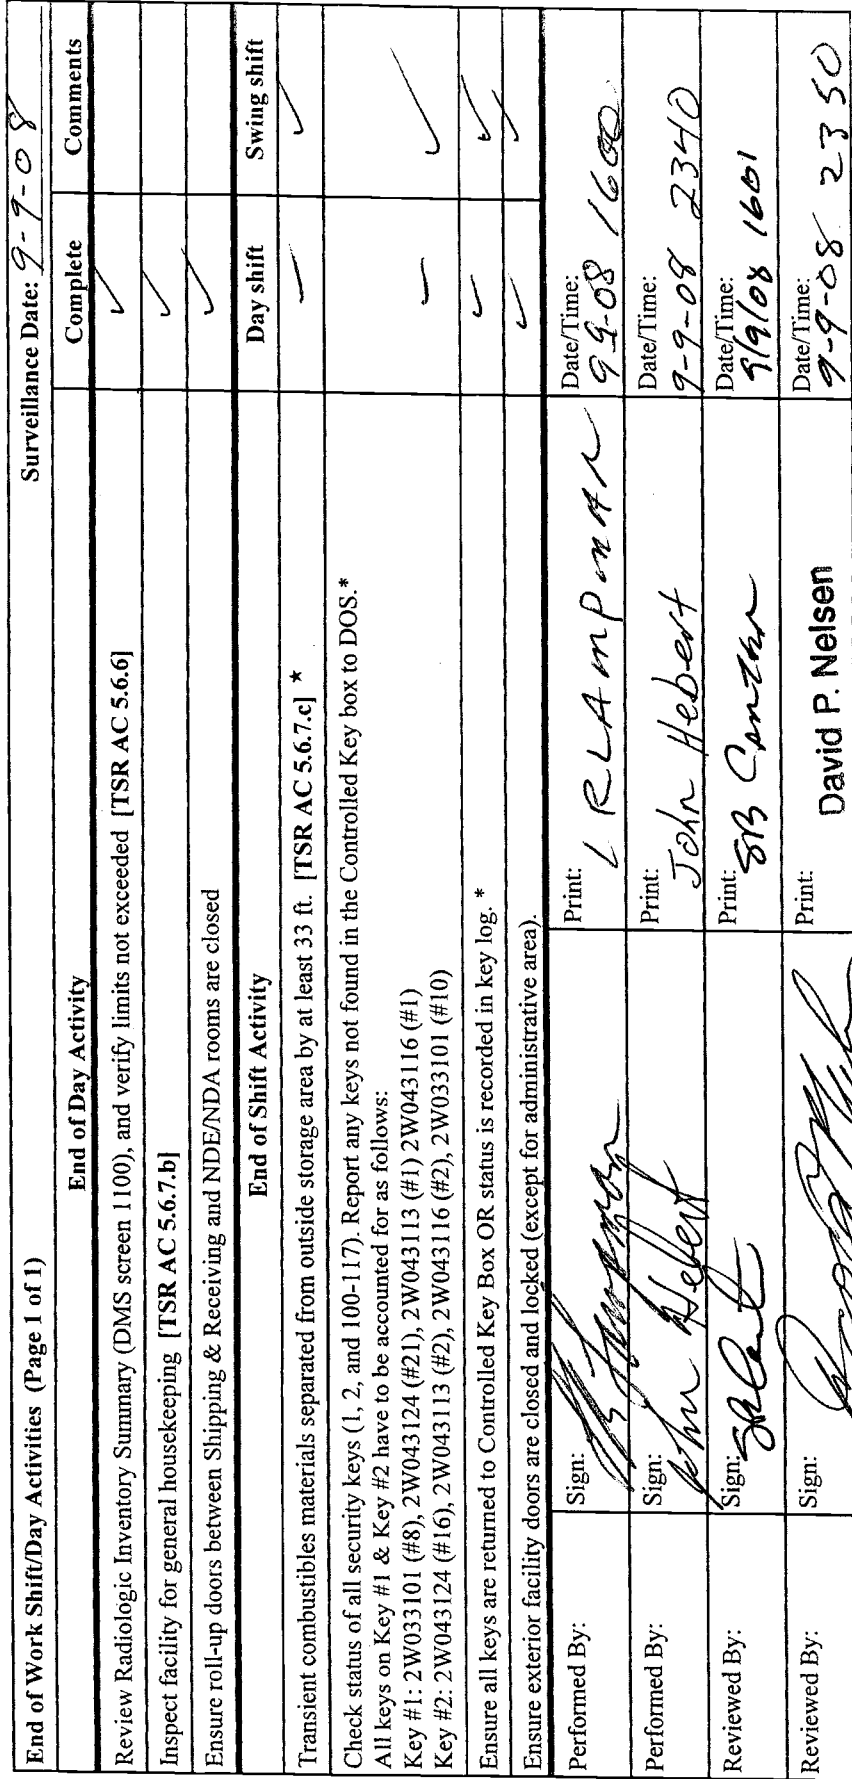 End of Work Shift/Day Activities (Page 1 of 1) Surveillance Date: 9-9-08
End of Day Activity Complete Comments
Review Radiologic Inventory Summary (DMS screen 1100), and verify limits not exceeded [TSR AC 5.6.6] ✓
Inspect facility for general housekeeping [TSR AC 5.6.7.b] ✓
Ensure roll-up doors between Shipping & Receiving and NDE/NDA rooms are closed ✓
End of Shift Activity Day shift Swing shift
Transient combustibles materials separated from outside storage area by at least 33 ft. [TSR AC 5.6.7.c] * ✓ ✓
Check status of all security keys (1, 2, and 100-117). Report any keys not found in the Controlled Key box to DOS.* ✓ ✓
All keys on Key #1 & Key #2 have to be accounted for as follows:
Key #1: 2W033101 (#8), 2W043124 (#21), 2W043113 (#1) 2W043116 (#1)
Key #2: 2W043124 (#16), 2W043113 (#2), 2W043116 (#2), 2W033101 (#10)
Ensure all keys are returned to Controlled Key Box OR status is recorded in key log. * ✓ ✓
Ensure exterior facility doors are closed and locked (except for administrative area). ✓ ✓
Performed By: Sign: Print: L R LAMPMAN Date/Time: 9-9-08 1600
Performed By: Sign: John Hebert Print: John Hebert Date/Time: 9-9-08 2340
Reviewed By: Sign: Print: SB Date/Time: 9/9/08 1601
Reviewed By: Sign: Print: David P. Nelsen Date/Time: 9-9-08 2350